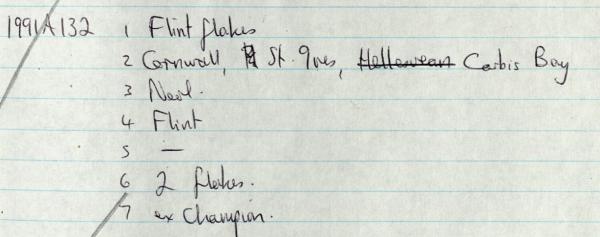 1991A132 1 Flint flakes
2 Cornwall, St. Ives, Hellevean Carbis Bay
3 Neol.
4 Flint
5 —
6 2 flakes.
7 ex Champion.